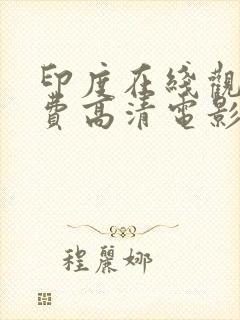 印度在綫觀
費高清電影
程麗娜